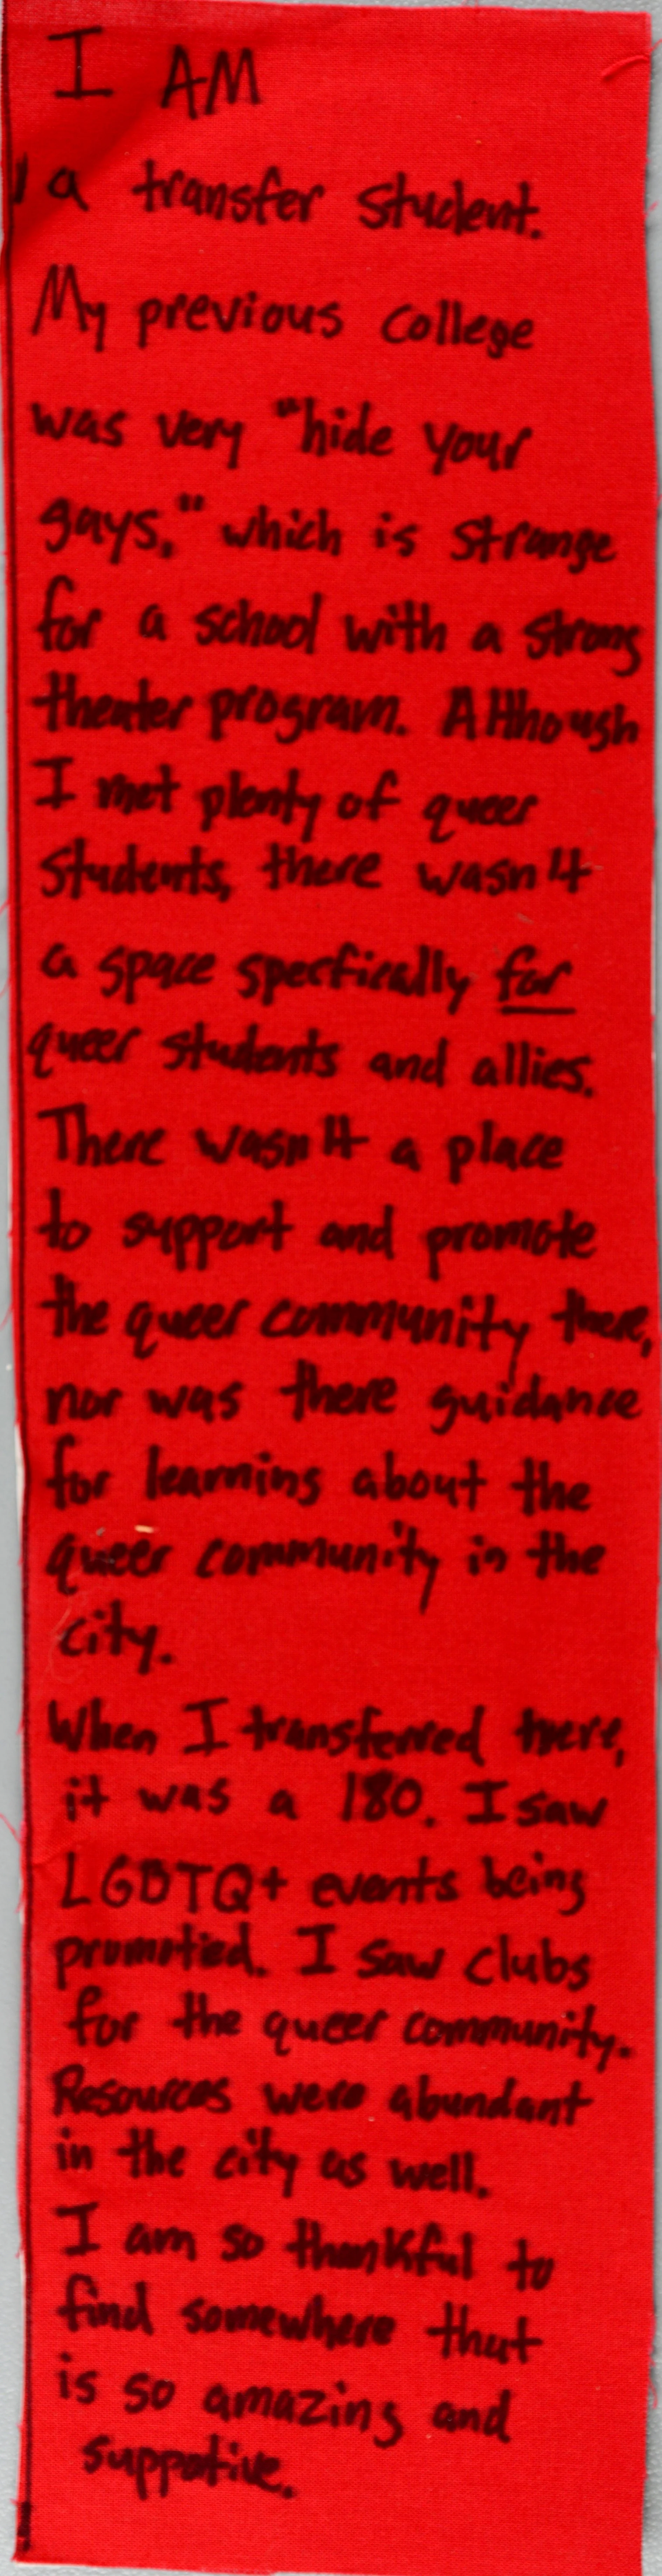 I AM
a transfer student.
My previous college
was very "hide your
gays," which is strange
for a school with a strong
theater program. Although
I met plenty of queer
students, there wasn't
a space specfically for
queer students and allies.
There wasn't a place
to support and promote
the queer community there,
nor was there guidance
for learning about the
queer community in the
city.
When I transferred here,
it was a 180. I saw
LGBTQ+ events being
promotied. I saw clubs
for the queer community.
Resources were abundant
in the city as well.
I am so thankful to
find somewhere that
is so amazing and
suppotive.